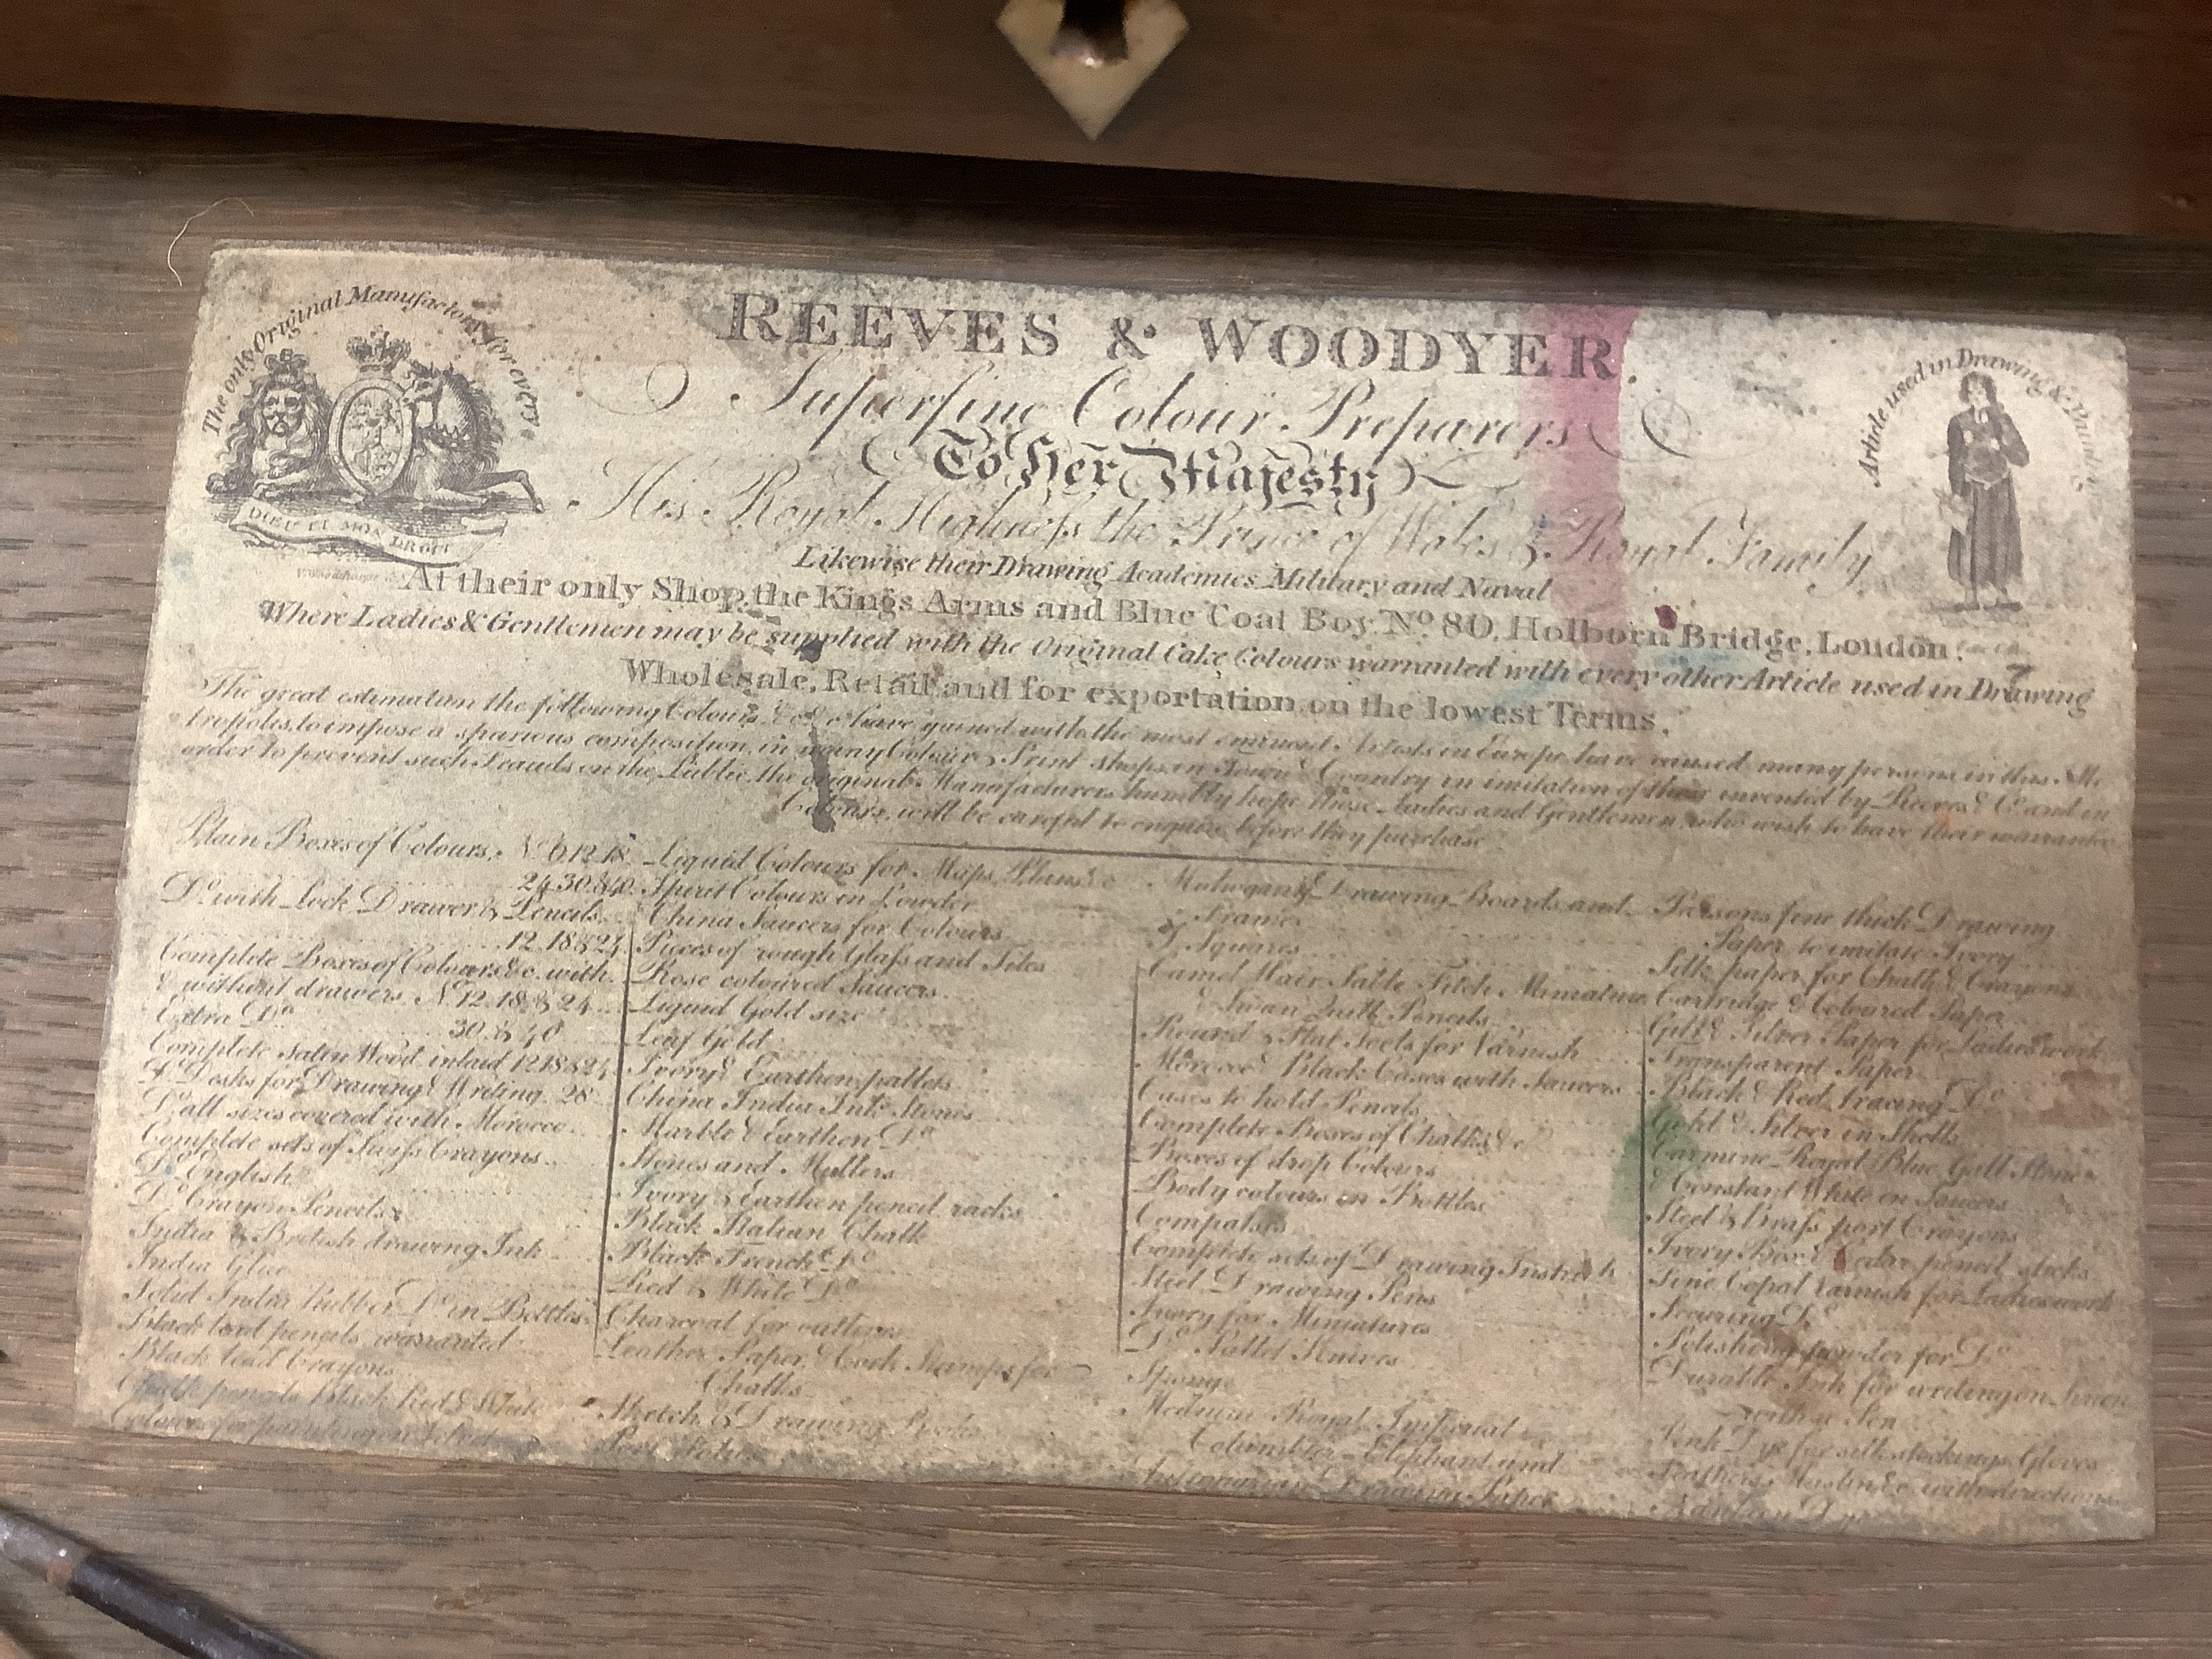 The only Original Manufactory for every
Article used in Drawing & Painting
DIEU ET MON DROIT
REEVES & WOODYER.
Superfine Colour Preparers
To Her Majesty
His Royal Highness the Prince of Wales & Royal Family
Likewise their Drawing Academies Military and Naval
At their only Shop, the Kings Arms and Blue Coat Boy No 80, Holborn Bridge, London.
Where Ladies & Gentlemen may be supplied with the Original Cake Colours warranted with every other Article used in Drawing
Wholesale, Retail and for exportation on the lowest Terms.
The great estimation the following Colours &c. &c. have gained with the most eminent Artists in Europe have caused many persons in this Me
tropolis, to impose a spurious composition, in many Colour & Print shops in Town & Country in imitation of those invented by Reeves & Co. and in
order to prevent such Frauds on the Public, the original Manufacturers humbly hope those Ladies and Gentlemen, who wish to have their warranted
Colours, will be careful to enquire before they purchase
Plain Boxes of Colours, No 6 12 18
24. 30. & 40.
Do. with Lock Drawer & Pencils
12. 18 & 24
Complete Boxes of Colours &c. with
& without drawers. No. 12. 18. & 24
Extra Do. 30. & 40
Complete Satin Wood inlaid 12 18 & 24
Desks for Drawing & Writing. 28
Do. all sizes covered with Morocco
Complete sets of Swiss Crayons
Do. English
Do. Crayon Pencils
India & British drawing Ink
India Glue
Solid India Rubber Do. in Bottles
Black lead pencils, warranted
Black lead Crayons
Chalk pencils Black Red & White
Colours for painting on Velvet
Liquid Colours for Maps, Plans &c
Spirit Colours in Powder
China Saucers for Colours
Pieces of rough Glass and Tiles
Rose coloured Saucers
Liquid Gold size
Leaf Gold
Ivory & Earthen pallets
China India Ink Stones
Marble & Earthen Do.
Stones and Mullers
Ivory & Earthen pencil racks
Black Italian Chalk
Black French Do.
Red & White Do.
Charcoal for outlines
Leather Paper & Cork Stamps for
Chalks
Sketch & Drawing Books
Port folios
Mahogany Drawing Boards and
Frames
T. Squares
Camel Hair Sable Fitch Miniature
& Swan Quill Pencils
Round & Flat Tools for Varnish
Morocco & Black Cases with Saucers
Cases to hold Pencils
Complete Boxes of Chalks &c
Boxes of drop Colours
Body colours in Bottles
Compasses
Complete sets of Drawing Instruts
Steel Drawing Pens
Ivory for Miniatures
Do. Pallet Knives
Sponge
Medium Royal Imperial
Columbier Elephant and
Antiquarian Drawing Paper
Persons fine thick Drawing
Paper to imitate Ivory
Silk paper for Chalk & Crayons
Cartridge & Coloured Paper
Gilt & Silver Paper for Ladies work
Transparent Paper
Black & Red tracing Do.
Gold & Silver in Shells
Carmine Royal Blue Gall Stone
& Constant White in Saucers
Steel & Brass port Crayons
Ivory Box & Cedar pencil sticks
Fine Copal Varnish for Ladies work
Securing Do.
Polishing powder for Do.
Durable Ink for writing on linen
with a Pen
Pink Dye for silk stockings, Gloves
Feathers, Muslin &c. with directions
Nankeen Dye